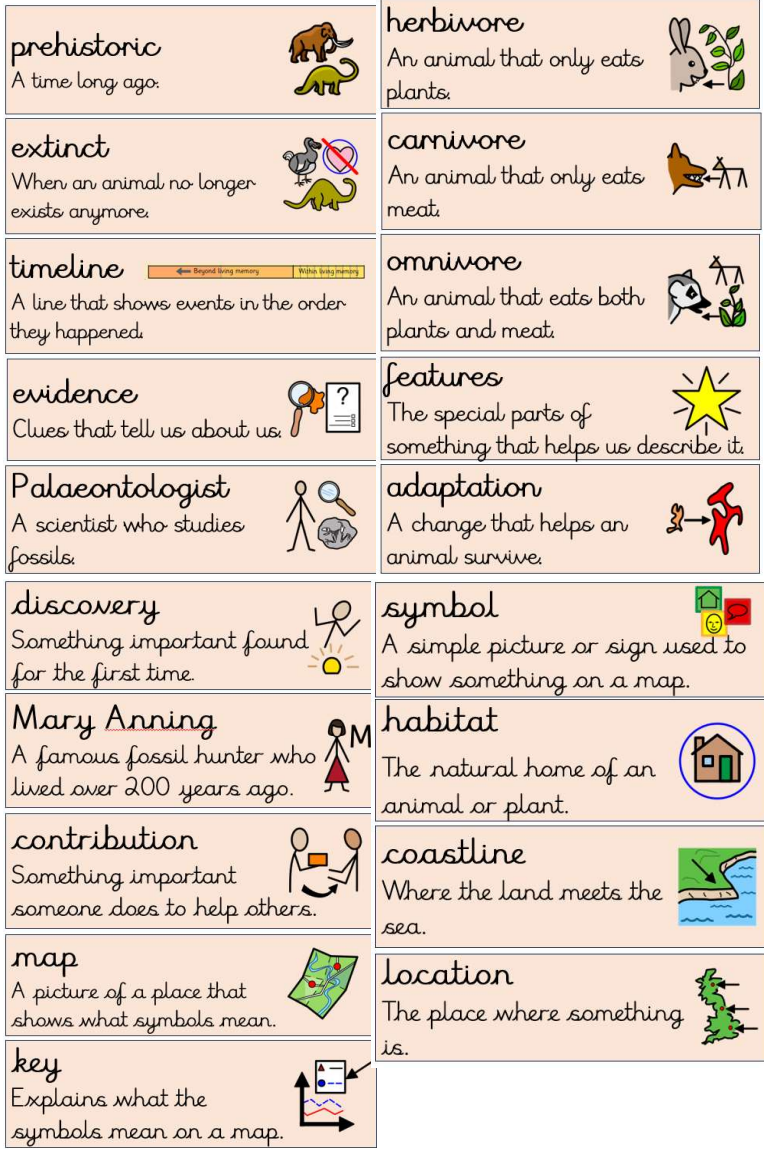 prehistoric
A time long ago.
extinct
When an animal no longer
exists anymore.
timeline
Beyond living memory
Within living memory
A line that shows events in the order
they happened.
evidence
?
Clues that tell us about us.
Palaeontologist
A scientist who studies
fossils.
discovery
Something important found
for the first time.
Mary Anning
M
A famous fossil hunter who
lived over 200 years ago.
contribution
Something important
someone does to help others.
map
A picture of a place that
shows what symbols mean.
key
Explains what the
symbols mean on a map.
herbivore
An animal that only eats
plants.
carnivore
An animal that only eats
meat.
omnivore
An animal that eats both
plants and meat.
features
The special parts of
something that helps us describe it.
adaptation
A change that helps an
animal survive.
symbol
A simple picture or sign used to
show something on a map.
habitat
The natural home of an
animal or plant.
coastline
Where the land meets the
sea.
location
The place where something
is.